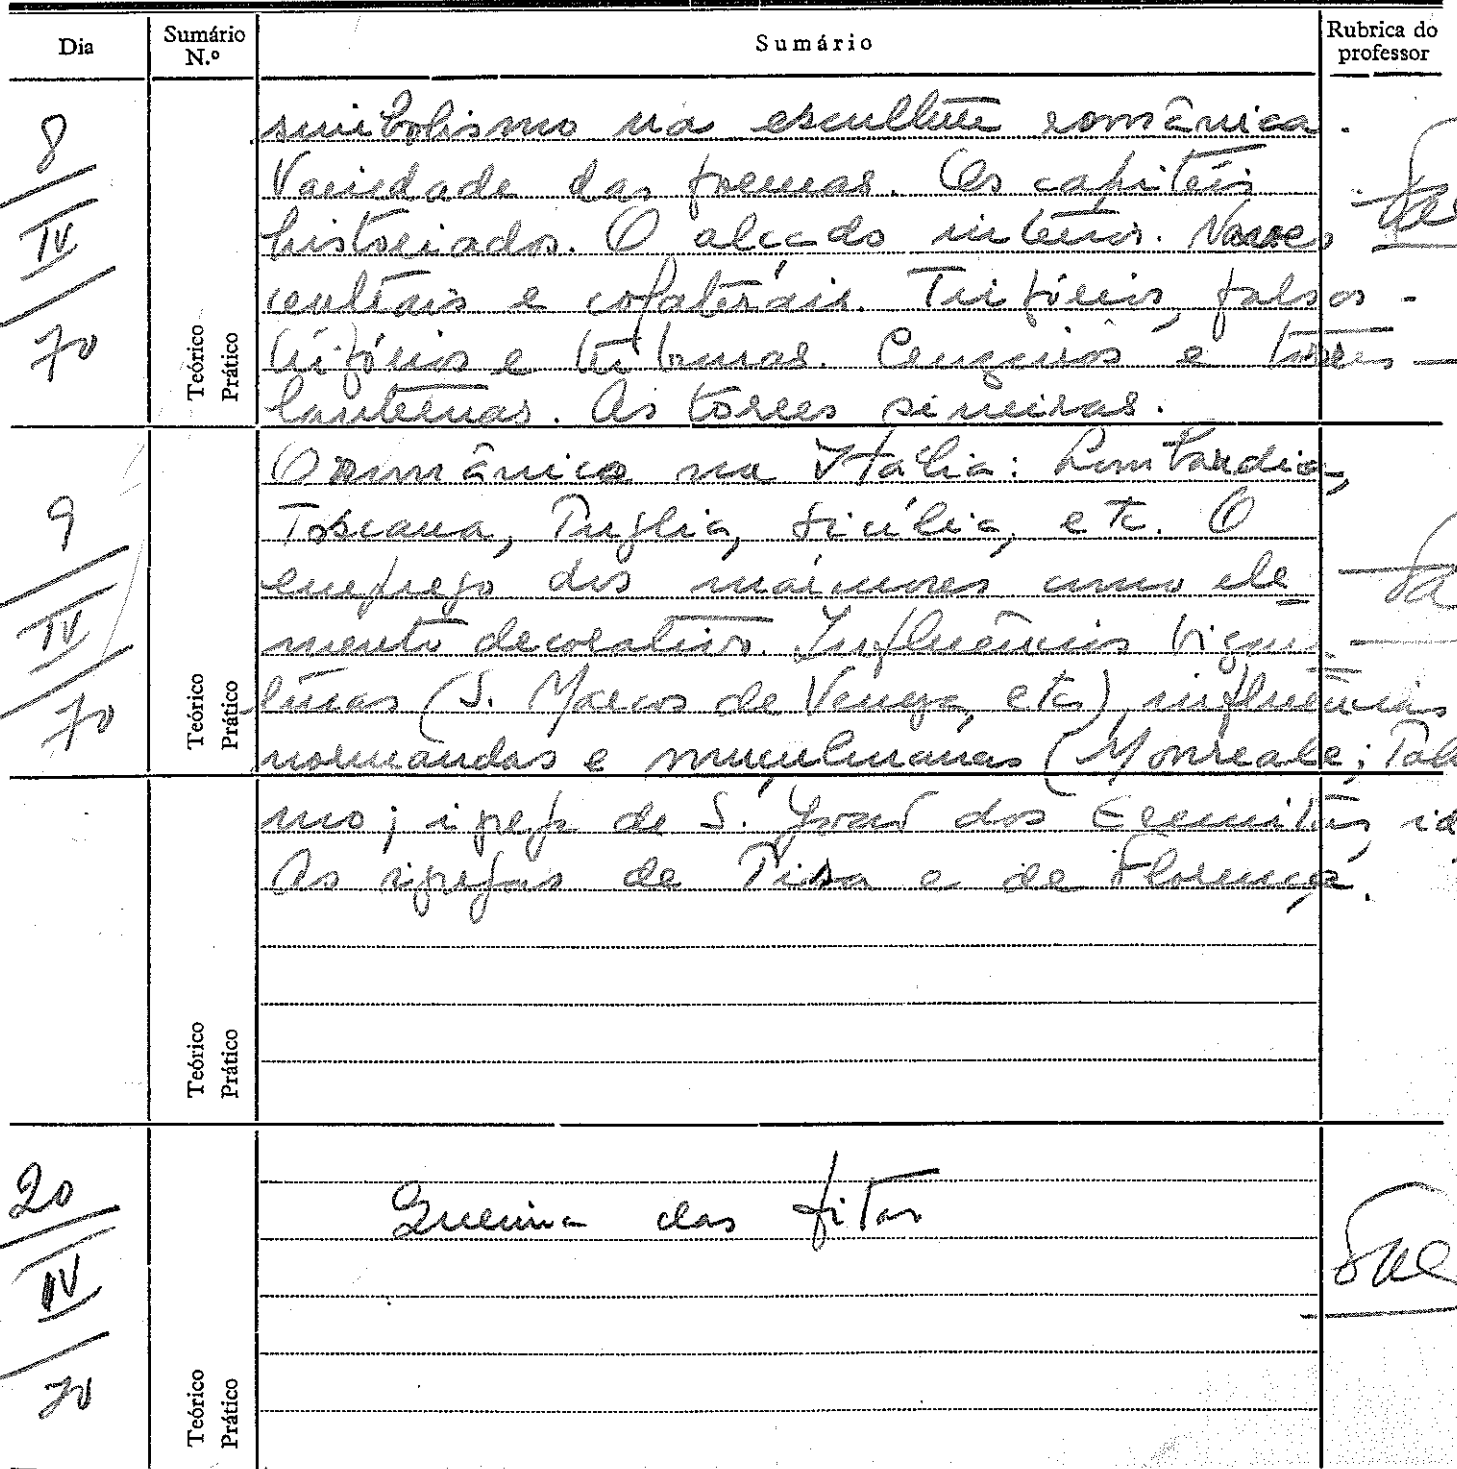 Dia
Sumário N.º
Sumário
Rubrica do professor
8
IV
70
Teórico
Prático
simbolismo na escultura românica.
Variedade das formas. Os capitéis
historiados. O alçado interior. Naves
centrais e colaterais. Trifórios, falsos-
trifórios e tribunas. Cruzeiros e torres-
lanternas. As torres sineiras.
9
IV
70
Teórico
Prático
O românico na Itália: Lombardia,
Toscana, Puglia, Sicília, etc. O
emprego dos mármores como ele
mento decorativo. Influências bizan-
tinas (S. Marcos de Veneza, etc), influências
normandas e muçulmanas (Monreale; Pale
Teórico
Prático
mo; igreja de S. João dos Eremitas, id
As igrejas de Pisa e de Florença.
20
IV
70
Teórico
Prático
Queima das fitas